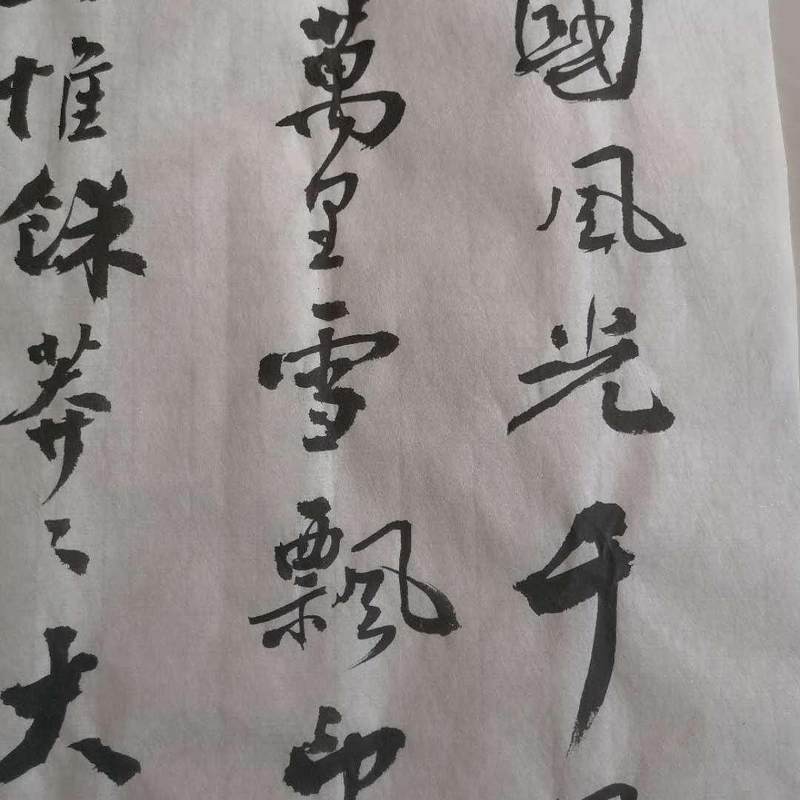 國風光千
萬里雪飄
惟餘莽〻大